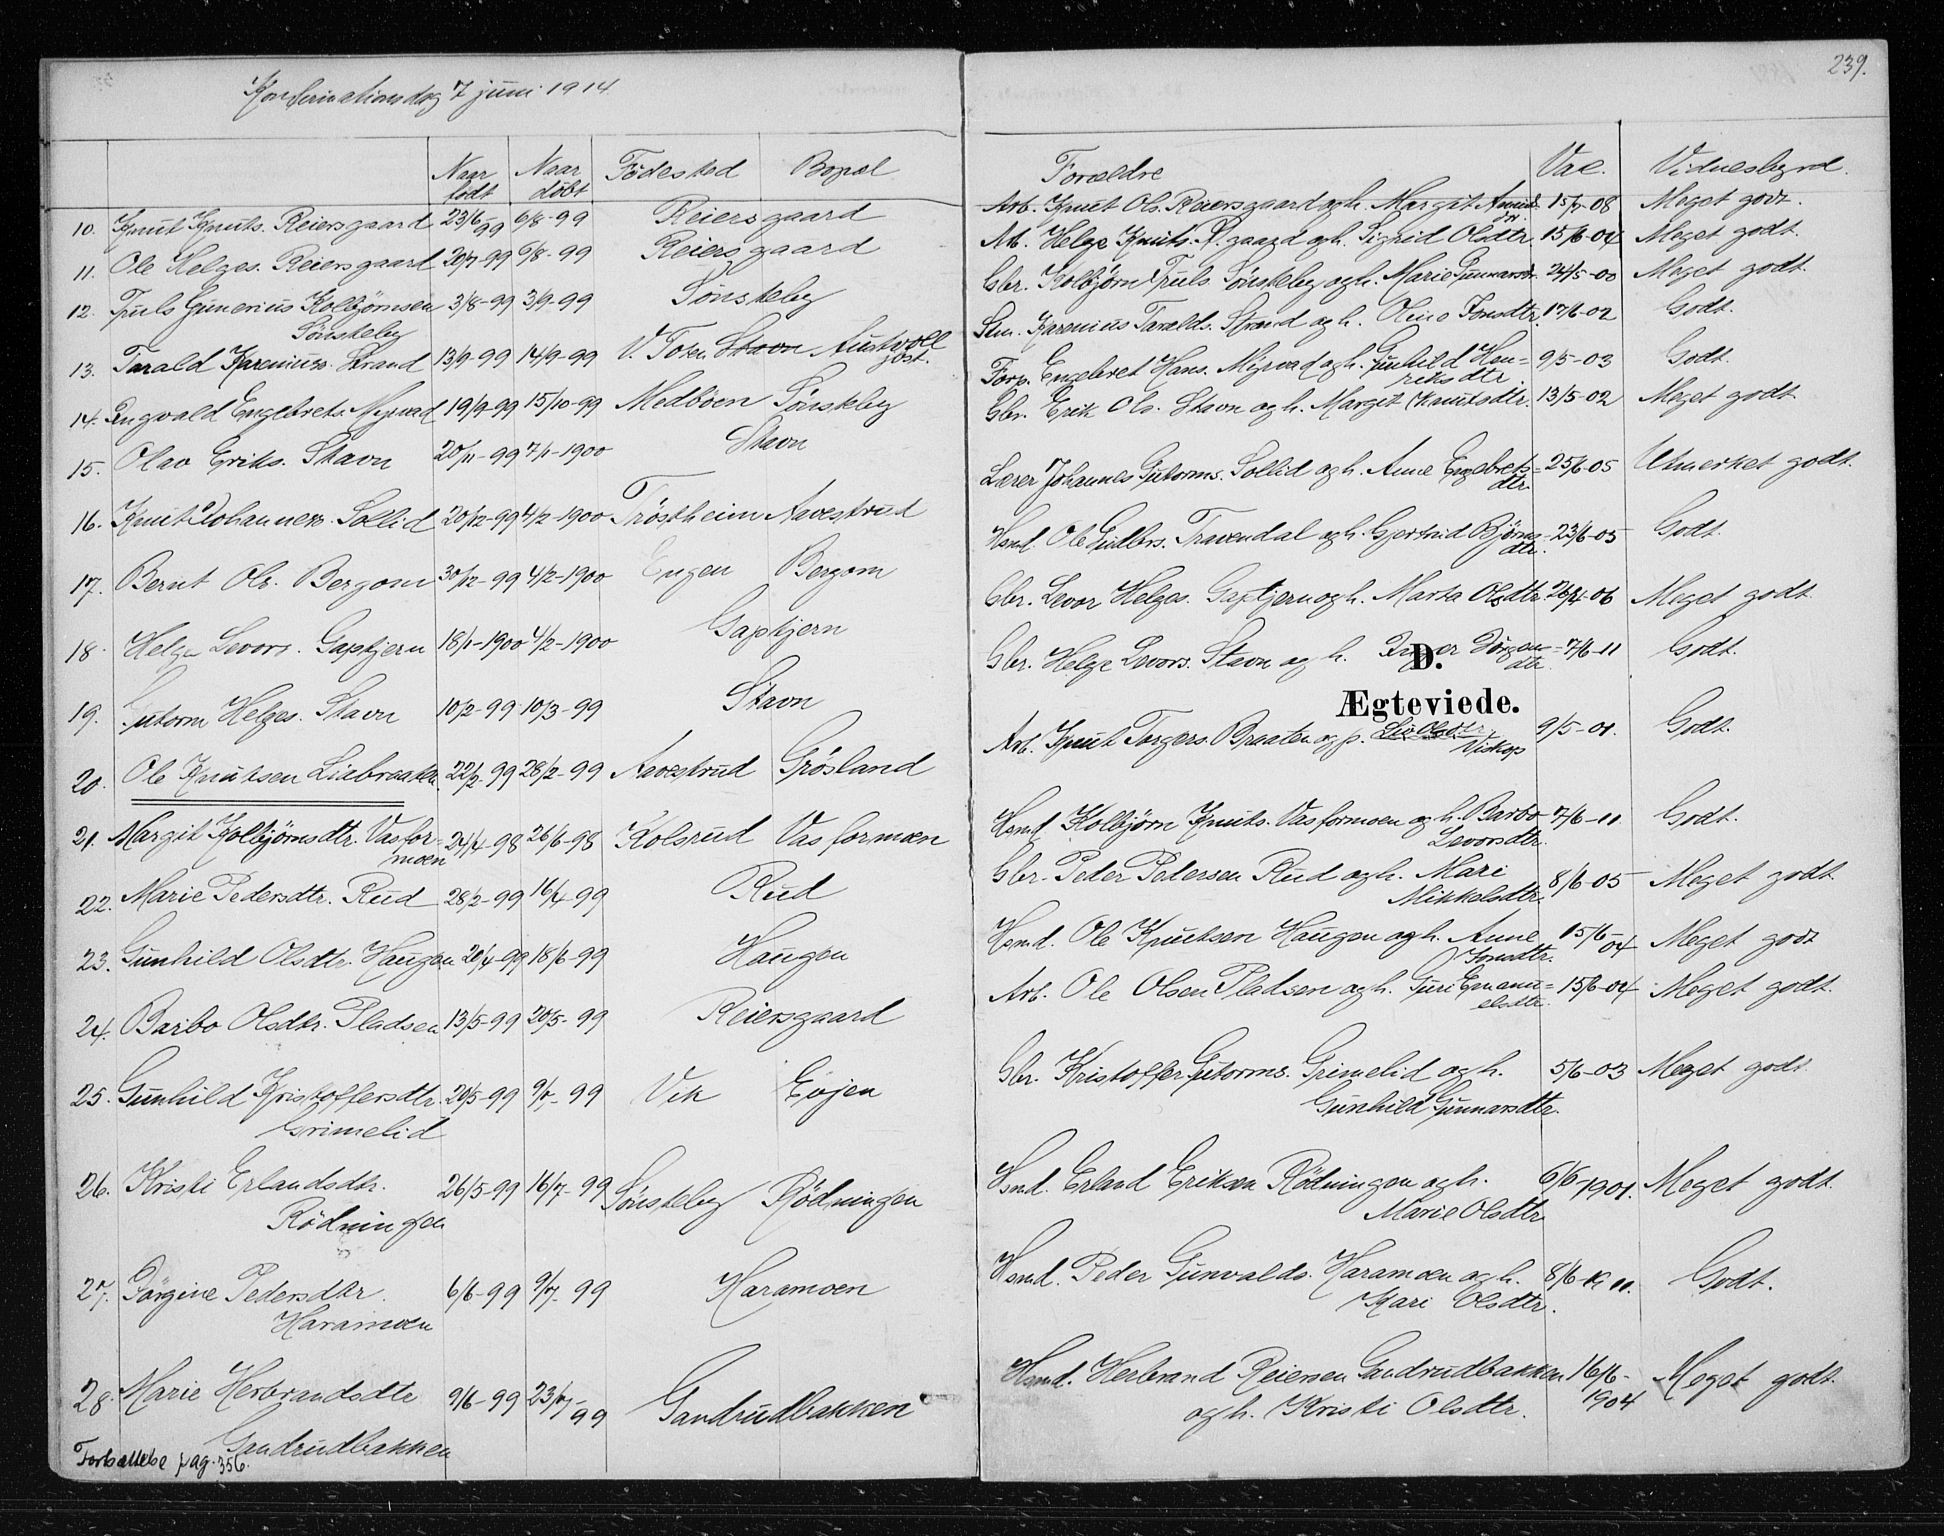 Konfirmationsdag 7 juni 1914
239.
Naar født Naar døbt Fødested Bopæl Forældre Vac. Vidnesbyrd.
10. Knut Knuts. Reiersgaard 23/6-99 6/8-99 Reiersgaard Arb. Knut Ols. Reiersgaard og h. Margit Amund- 15/7-08 Meget godt.
dtr.
11. Ole Helges. Reiersgaard 20/7-99 6/8-99 Reiersgaard Arb. Helge Knuts. R.gaard og h. Sigrid Olsdtr. 15/6-04 Meget godt.
12. Truls Gunerius Kolbjørnsen 3/8-99 3/9-99 Sønsteby Gbr. Kolbjørn Truls. Sønsteby og h. Marie Gunnarsd. 24/5-00 Meget godt.
Sønsteby
13. Tarald Kareniuss. Strand 13/9-99 14/9-99 V. Toten Stavn Austvoll Sem. Karenius Taralds. Strand og h. Oline Jonsdtr. 17/6-02 Godt.
øst.
14. Ingvald Engebrets. Myrvad 19/9-99 15/10-99 Medbøen Sønsteby Forp. Engebret Hans. Myrvad og h. Gunhild Hen- 9/5-03 Godt.
riksdtr.
15. Olav Eriks. Stavn 20/11-99 7/1-1900 Stavn Gbr. Erik Ols. Stavn og h. Margit Knutsdtr. 13/5-02 Meget godt.
16. Knut Johanness. Sollid 20/12-99 4/2-1900 Trøstheim Aavestrud Lærer Johannes Gutorms. Sollid og h. Anne Engebrets- 25/6-05 Utmerket godt.
dtr.
17. Bernt Ols. Bergom 30/12-99 4/2-1900 Engen Bergom Hsmd. Ole Gulbrs. Travendal og h. Gjertrud Bjørns- 23/6-05 Godt.
dtr.
18. Helge Levors. Gaptjern 18/1-1900 4/2-1900 Gaptjern Gbr. Levor Helges. Gaptjern og h. Marta Olsdtr. 26/4-06 Meget godt.
19. Gutorm Helges. Stavn 10/2-99 10/3-99 Stavn Gbr. Helge Levors. Stavn og h. Jørgen- 7/6-11 Godt.
dtr.
D.
Ægteviede.
20. Ole Knutsen Liabraaten 22/2-99 28/2-99 Aavestrud Grøsland Arb. Knut Torgers. Braaten og p. Liv Olsdtr. 9/5-01. Godt.
Viskop
21. Margit Kolbjørnsdtr. Vasfor- 24/4-98 26/6-98 Kolsrud Vasformoen Hsmd. Kolbjørn Knuts. Vasformoen og h. Barbo 7/6-11 Godt.
moen Levorsdtr.
22. Marie Pedersdtr. Rud 28/2-99 16/4-99 Rud Gbr. Peder Pedersen Rud og h. Mari 8/6-05 Meget godt.
Mikkelsdtr.
23. Gunhild Olsdtr. Haugen 20/4-99 18/6-99 Haugen Hsmd. Ole Knutsen Haugen og h. Anne 15/6-04 Meget godt
Jonsdtr.
24. Barbo Olsdtr. Pladsen 13/5-99 20/5-99 Reiersgaard Arb. Ole Olsen Pladsen og h. Guri Emanu- 15/6-04 Meget godt.
elsdtr.
25. Gunhild Kristoffersdtr. 20/5-99 9/7-99 Vik Evjen Gbr. Kristoffer Gutorms. Grimelid og h. 5/6-03 Meget godt.
Grimelid Gunhild Gunnarsdtr.
26. Kristi Erlandsdtr. 26/5-99 16/7-99 Sønsteby Rødningen Hsmd. Erland Eriksen Rødningen og h. 6/6-1901. Meget godt.
Rødningen Marie Olsdtr.
27. Jørgine Pedersdtr. 6/6-99 9/7-99 Haramoen Hsmd. Peder Gunvalds. Haramoen og h. 8/6- 11. Godt.
Haramoen Kari Olsdtr.
28. Marie Herbrandsdtr 9/6-99 23/7-99 Gandrudbakken Hsmd. Herbrand Reiersen Gandrudbakken 16/6-1904 Meget godt.
Gandrudbakken og h. Kristi Olsdtr.
Fortsættelse pag. 356.